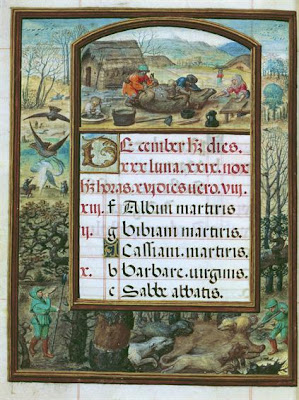 December hz dies.
xxx luna. xxix. nox
hz horas. xvj dies uero. viij.
xiij. f Albini martiris
ij. g bibiani martiris.
A Cassiani. martiris.
x. b barbare. uirginis.
c Sabbe abbatis.